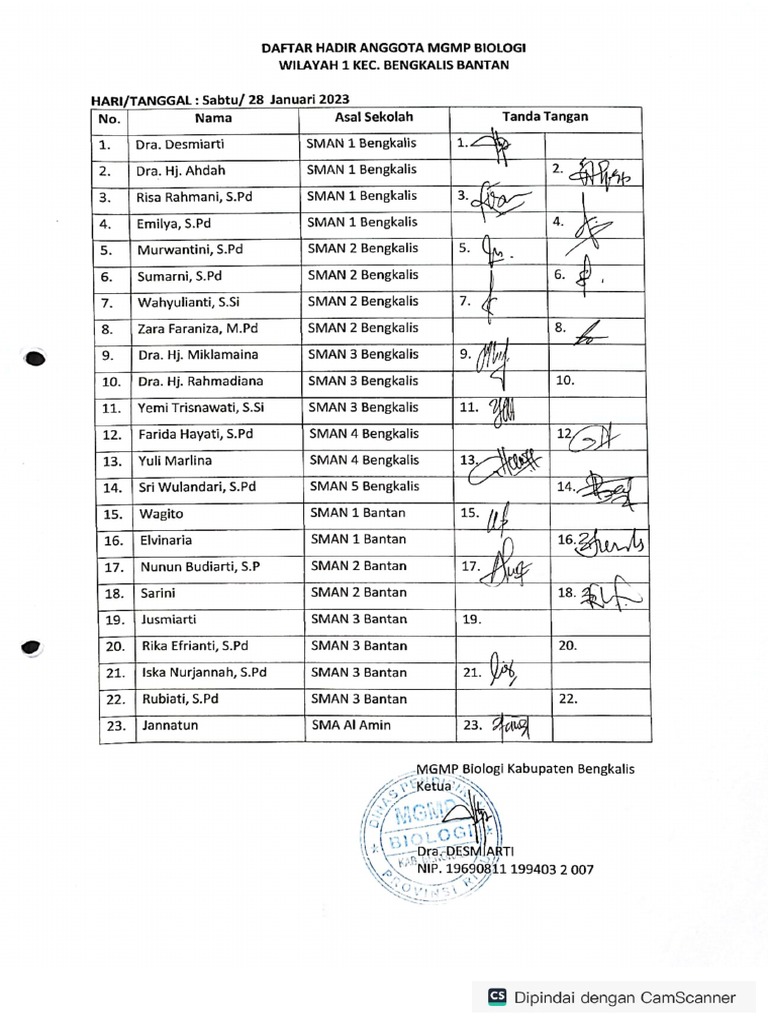 DAFTAR HADIR ANGGOTA MGMP BIOLOGI
WILAYAH 1 KEC. BENGKALIS BANTAN
HARI/TANGGAL : Sabtu/ 28 Januari 2023
No. Nama Asal Sekolah Tanda Tangan
1. Dra. Desmiarti SMAN 1 Bengkalis 1.
2. Dra. Hj. Ahdah SMAN 1 Bengkalis 2.
3. Risa Rahmani, S.Pd SMAN 1 Bengkalis 3.
4. Emilya, S.Pd SMAN 1 Bengkalis 4.
5. Murwantini, S.Pd SMAN 2 Bengkalis 5.
6. Sumarni, S.Pd SMAN 2 Bengkalis 6.
7. Wahyulianti, S.Si SMAN 2 Bengkalis 7.
8. Zara Faraniza, M.Pd SMAN 2 Bengkalis 8.
9. Dra. Hj. Miklamaina SMAN 3 Bengkalis 9.
10. Dra. Hj. Rahmadiana SMAN 3 Bengkalis 10.
11. Yemi Trisnawati, S.Si SMAN 3 Bengkalis 11.
12. Farida Hayati, S.Pd SMAN 4 Bengkalis 12
13. Yuli Marlina SMAN 4 Bengkalis 13.
14. Sri Wulandari, S.Pd SMAN 5 Bengkalis 14.
15. Wagito SMAN 1 Bantan 15.
16. Elvinaria SMAN 1 Bantan 16.
17. Nunun Budiarti, S.P SMAN 2 Bantan 17.
18. Sarini SMAN 2 Bantan 18.
19. Jusmiarti SMAN 3 Bantan 19.
20. Rika Efrianti, S.Pd SMAN 3 Bantan 20.
21. Iska Nurjannah, S.Pd SMAN 3 Bantan 21.
22. Rubiati, S.Pd SMAN 3 Bantan 22.
23. Jannatun SMA Al Amin 23.
MGMP Biologi Kabupaten Bengkalis
Ketua
MGMP
BIOLOGI
Dra. DESMIARTI
NIP. 19690811 199403 2 007
CS Dipindai dengan CamScanner